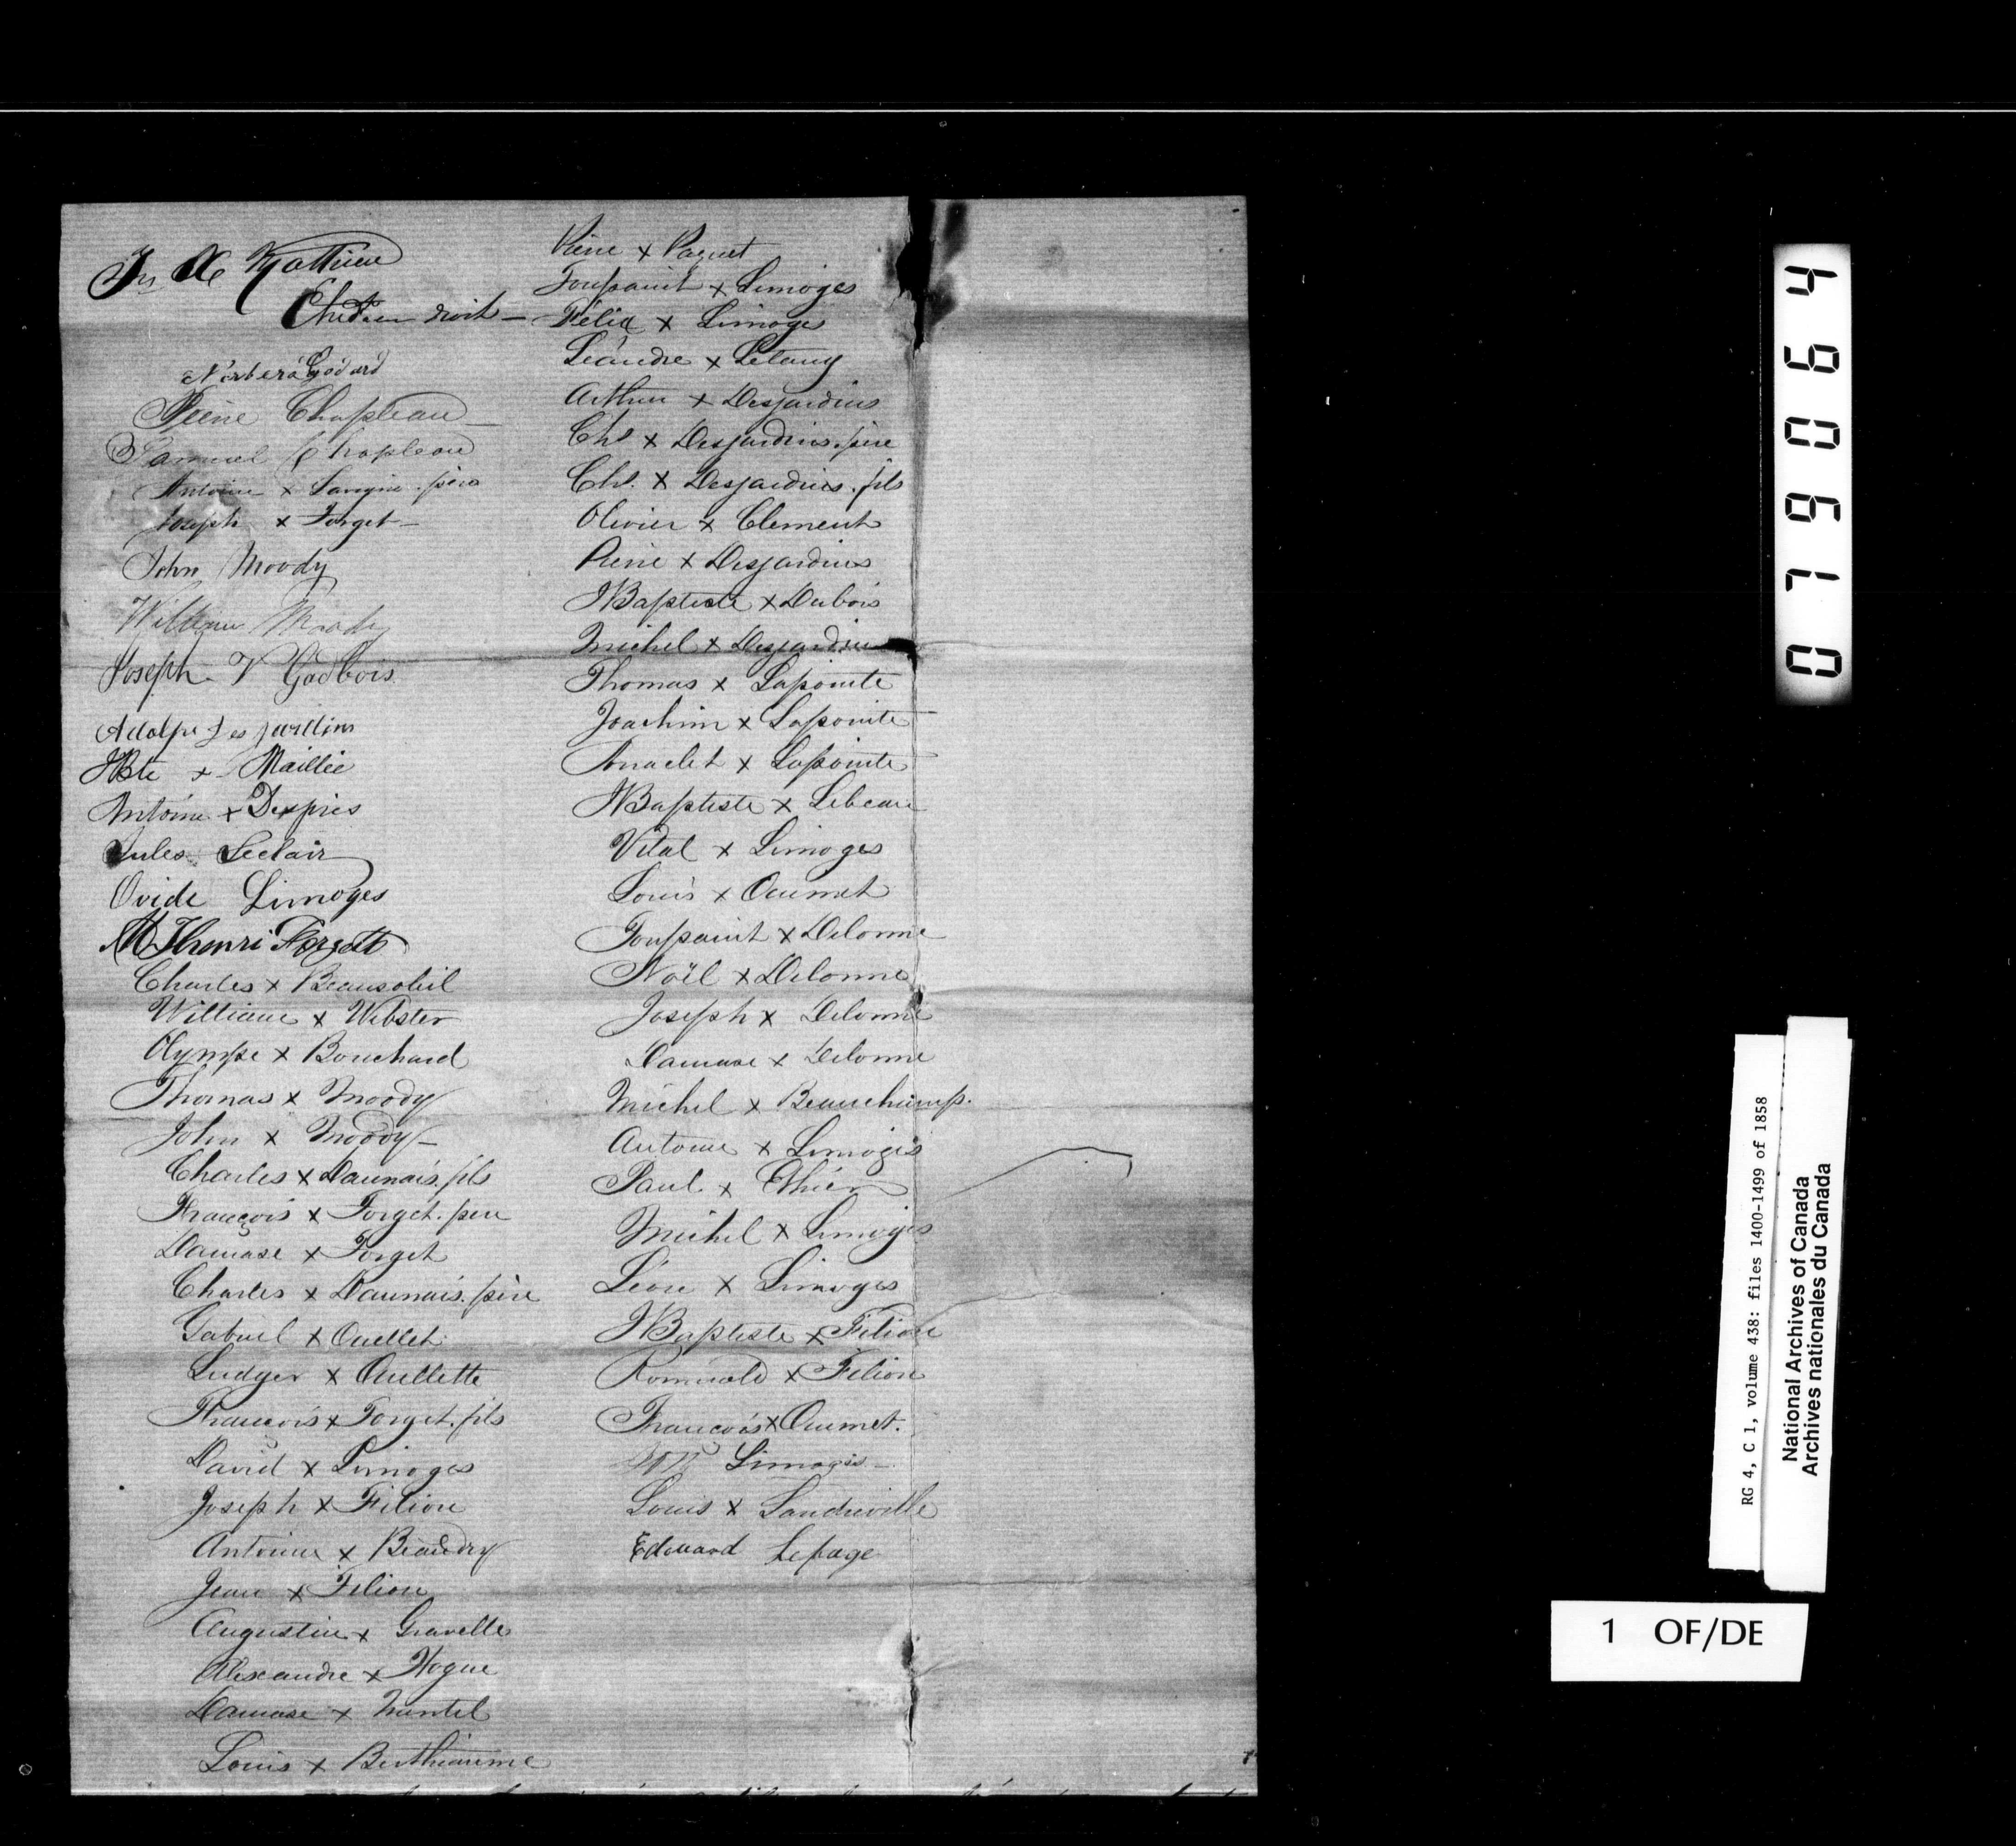 Jn Mathieu
Etud. en droit —
Norbert Godard
Pierre Chapleau
Samuel Chapleau
Antoine x Lavigne. père
Joseph x Forget —
John Moody
William Moody
Joseph V Gadbois
Adolphe Desjardins
JBte x Maillié
Antoine x Despries
Jules Leclair
Ovide Limoges
Henri Forgett
Charles x Beausoleil
William x Webster
Olympe x Bouchard
Thomas x Moody
John x Moody —
Charles x Daunais. fils
François x Forget. père
Damase x Forget
Charles x Daunais. père
Gabriel x Ouellet
Ludger x Ouellette
François x Forget. fils
David x Limoges
Joseph x Filion
Antoine x Beaudry
Jean x Filion
Augustin x Gravelle
Alexandre x Hogue
Damase x
Louis x Berthiaume
Pierre x Paquet
Toussaint x Limoges
Félix x Limoges
Léandre x
Arthur x Desjardins
Chs x Desjardins. père
Chs. x Desjardins. fils
Olivier x Clement
Pierre x Desjardins
JBaptiste x Dubois
Michel x Desjardins
Thomas x Lapointe
Joachim x Lapointe
Anaclet x Lapointe
JBaptiste x Lebeau
Vital x Limoges
Louis x Ouimet
Toussaint x Delorme
Noël x Delorme
Joseph x Delorme
Damase x Delorme
Michel x Beauchamp.
Antoine x Limoges
Paul x Ethier
Michel x Limoges
Léon x Limoges
JBaptiste x Filion
Romuald x Filion
François x Ouimet.
Limoges —
Louis x Landreville
Edouard Lepage
079064
RG 4, C 1, volume 438: files 1400-1499 of 1858
National Archives of Canada
Archives nationales du Canada
1 OF/DE